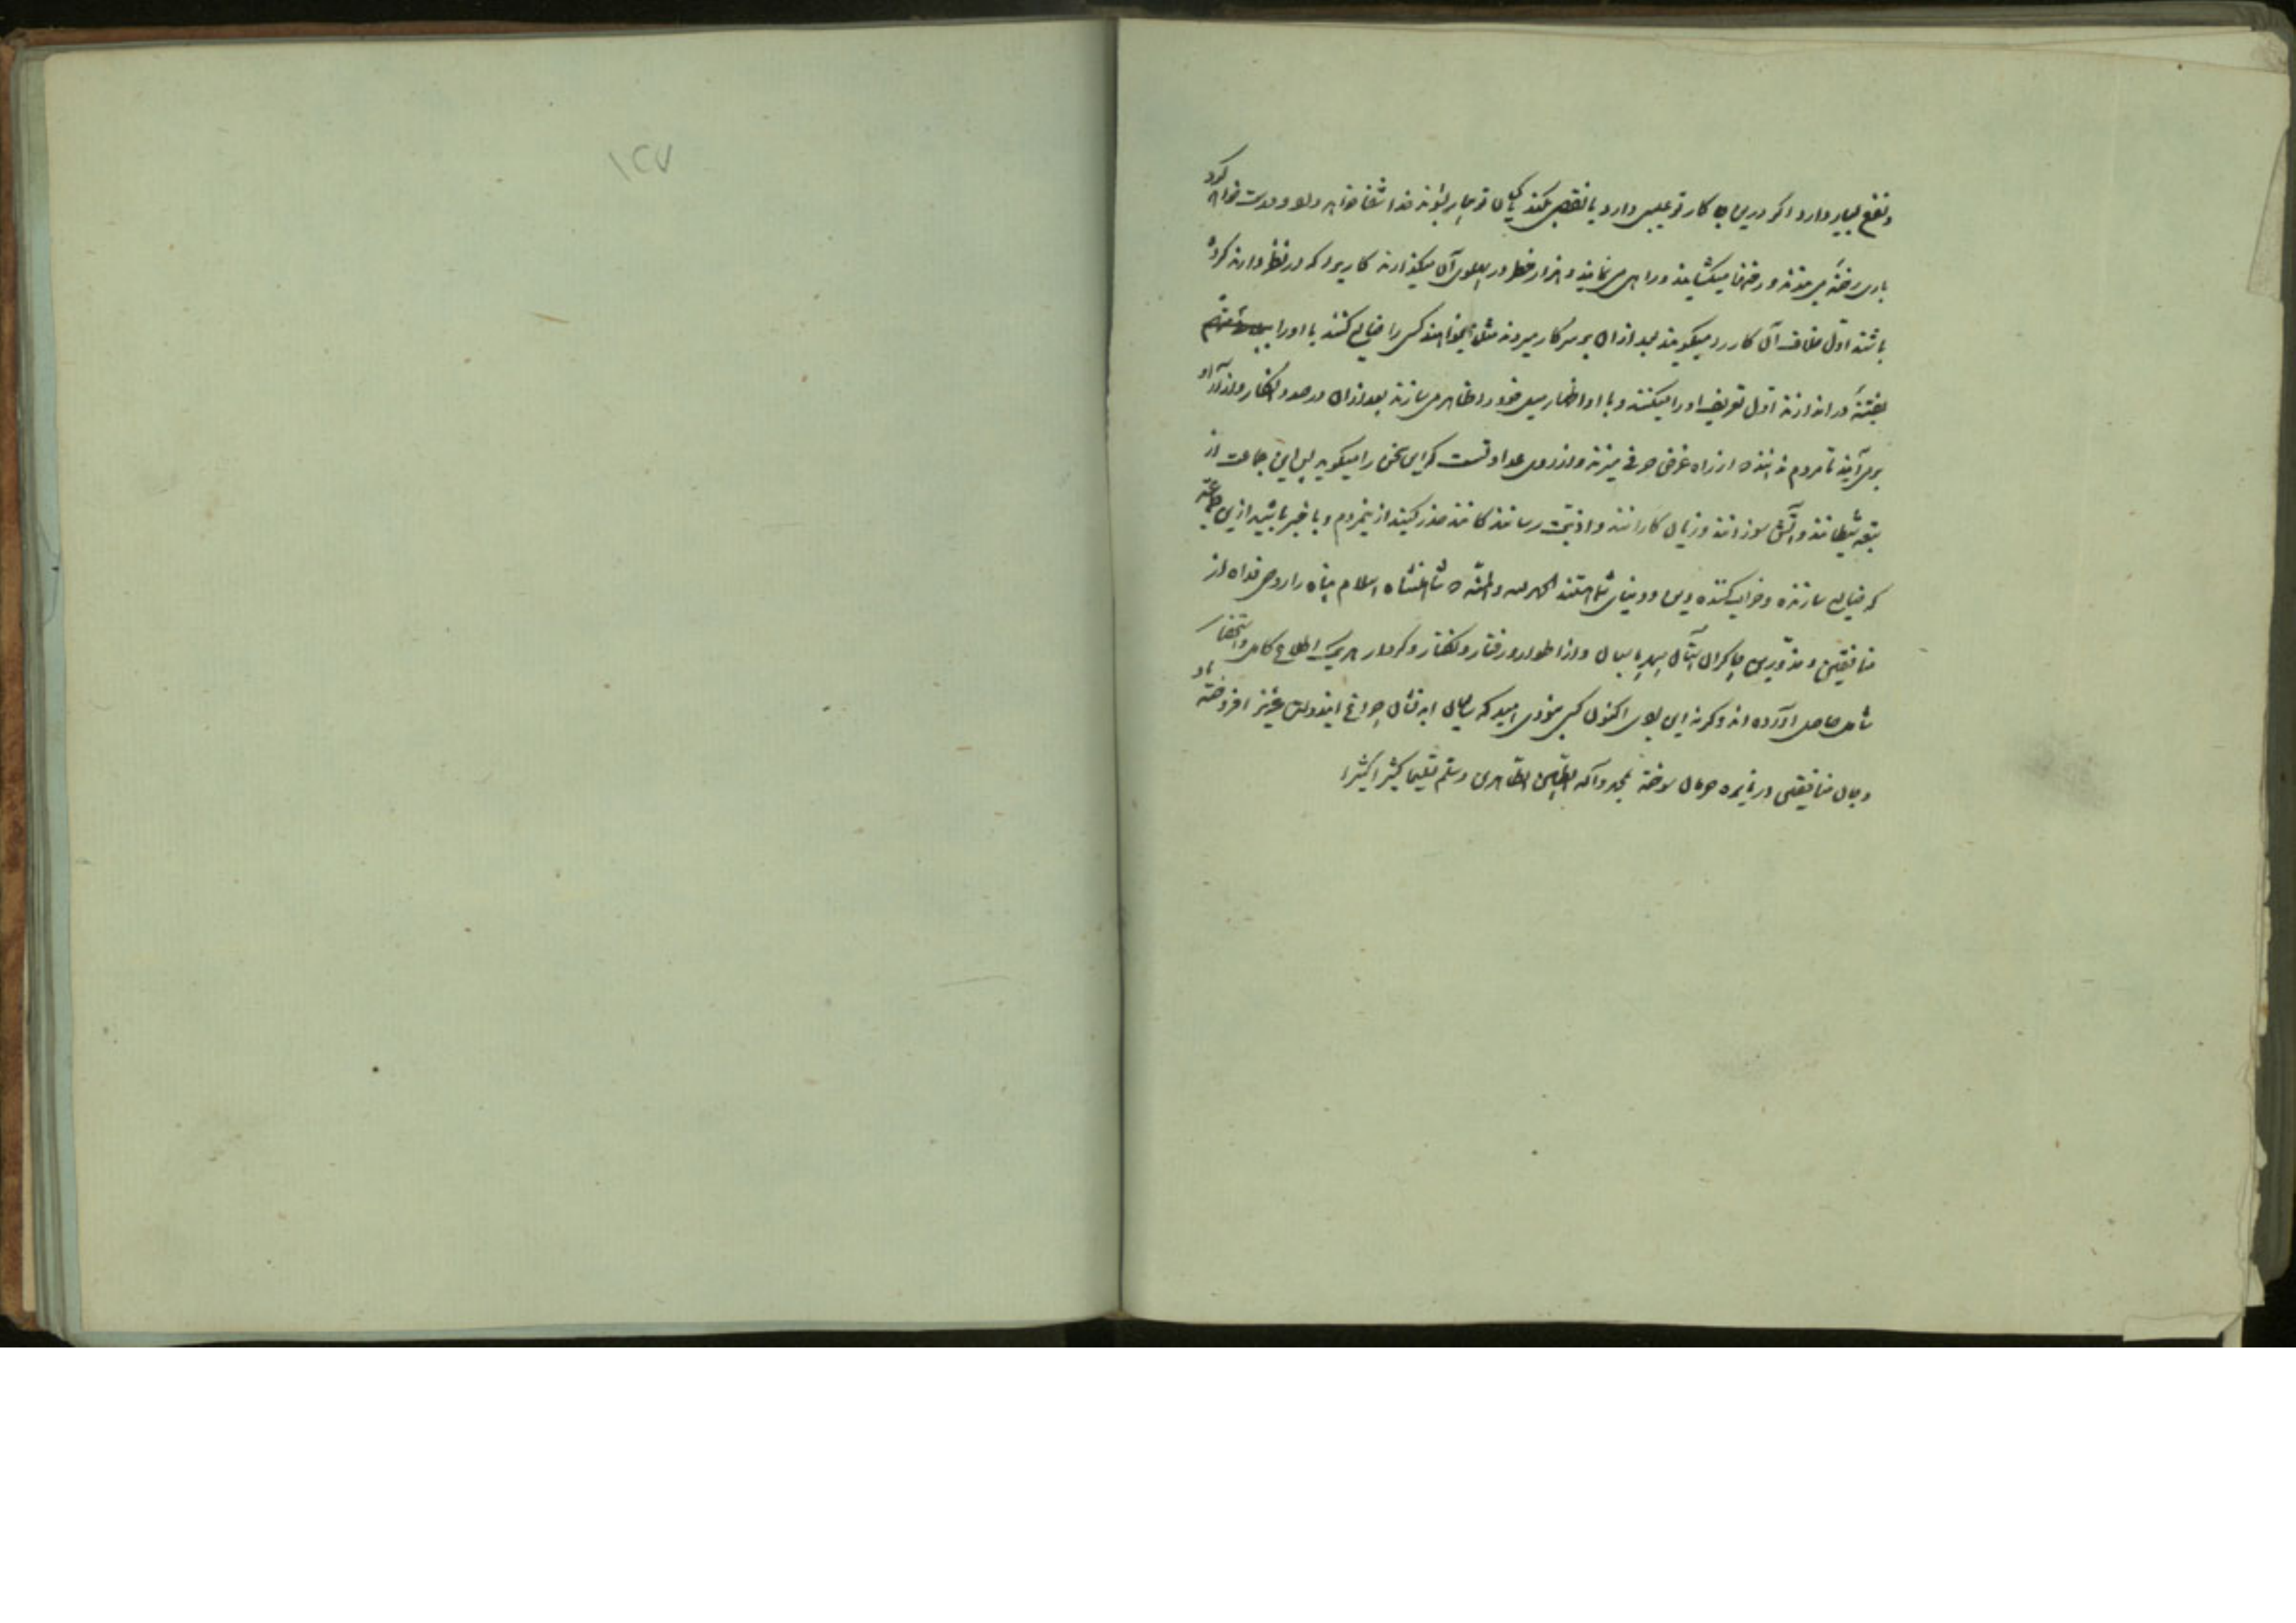 و نفع بسیار دارد اگر درین کار تو عیبی دارد یا نقصی میکند خدا شفا خواهد داد و درست خواهد کرد
باری رخنه و رخنها میکشایند و راه می نمایند و هزار خطر در پهلوی آن میگذارند کاریرا که در نظر دارند کرده
باشند اول خلاف آن کار رد میگویند بعد از آن بر سر کار میروند مثلا میخواهند کسی را ضایع کنند یا او را
بفتنه در اندازند اول تعریف او را میکنند و با او اظهار میل خود را ظاهر می سازند بعد از آن در صدد انکار و آزار او
برمی آیند تا مردم ندانند که از راه غرض حرفی میزند و از روی عداوتست که این سخن را میگوید پس این جماعت از
تبعه شیطانند و آتش سوزانند و زیان کارانند و اذیت رسانندکانند حذر کنید از ینمردم و با خبر باشید ازین طایفه
که ضایع سازنده و خراب کننده دین و دنیای شما هستند الحمد لله و المنه که شاهنشاه اسلام پناه را روحی فداه از
منافقین و مزورین چاکران آستان سپهر پاسبان و از اطوار و رفتار و گفتار و کردار هر یک اطلاع کامل و استحضار
شامل حاصل آورده اند و کرنه این بودی اکنون کسی نبودی امید که سالهای چراغ ایندولت عزیز افروخته باد
و جان منافقین در نایره حرمان سوخته بمحمد و آله الطیبین الطاهرین و سلم تسلیما کثیرا کثیرا
۱۲۷